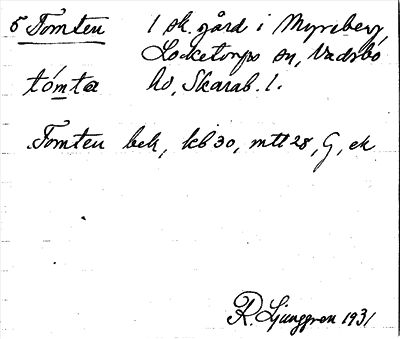 5 Tomten 1 sk. gård i Myreberg,
Locketorps sn, Vadsbo
tómta hd, Skarab. l.
Tomten bek, kb 30, mtl 28, G, ek
R. Ljunggren 1931